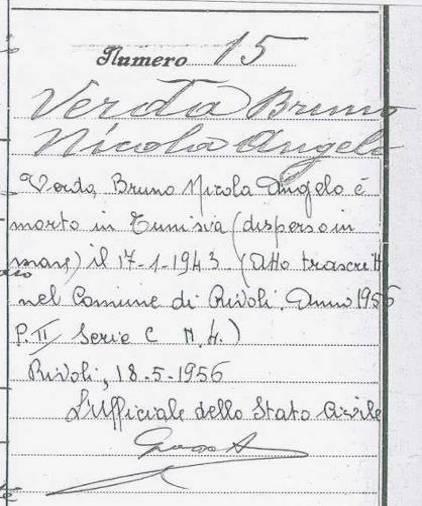 Numero 15
Verda Bruno
Nicola Angelo
Verda, Bruno Nicola Angelo è
morto in Tunisia (disperso in
mare) il 17-1-1943. (Atto trascritto
nel Comune di Rivoli. Anno 1956
P. II Serie C N. 4.)
Rivoli, 18-5-1956
L'Ufficiale dello Stato Civile